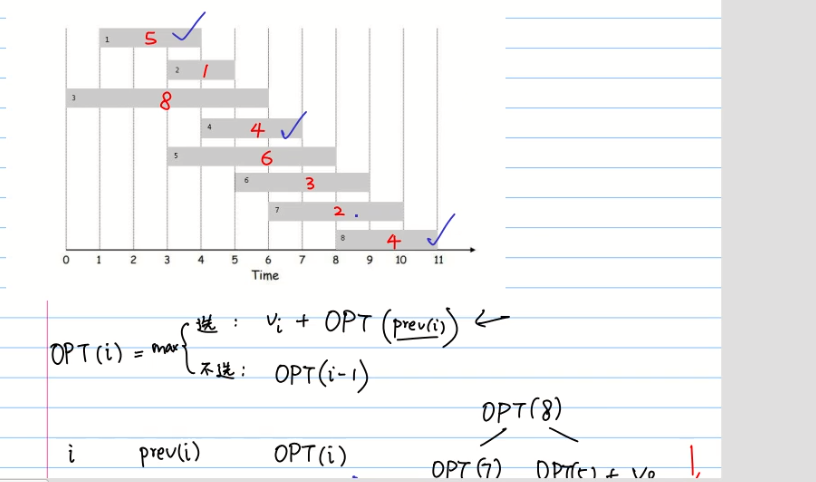 1 5
2 1
3 8
4 4
5 6
6 3
7 2
8 4
0 1 2 3 4 5 6 7 8 9 10 11
Time
OPT(i) = max
选: vi + OPT(prev(i)) ←
不选: OPT(i-1)
OPT(8)
i prev(i) OPT(i)
OPT(7)